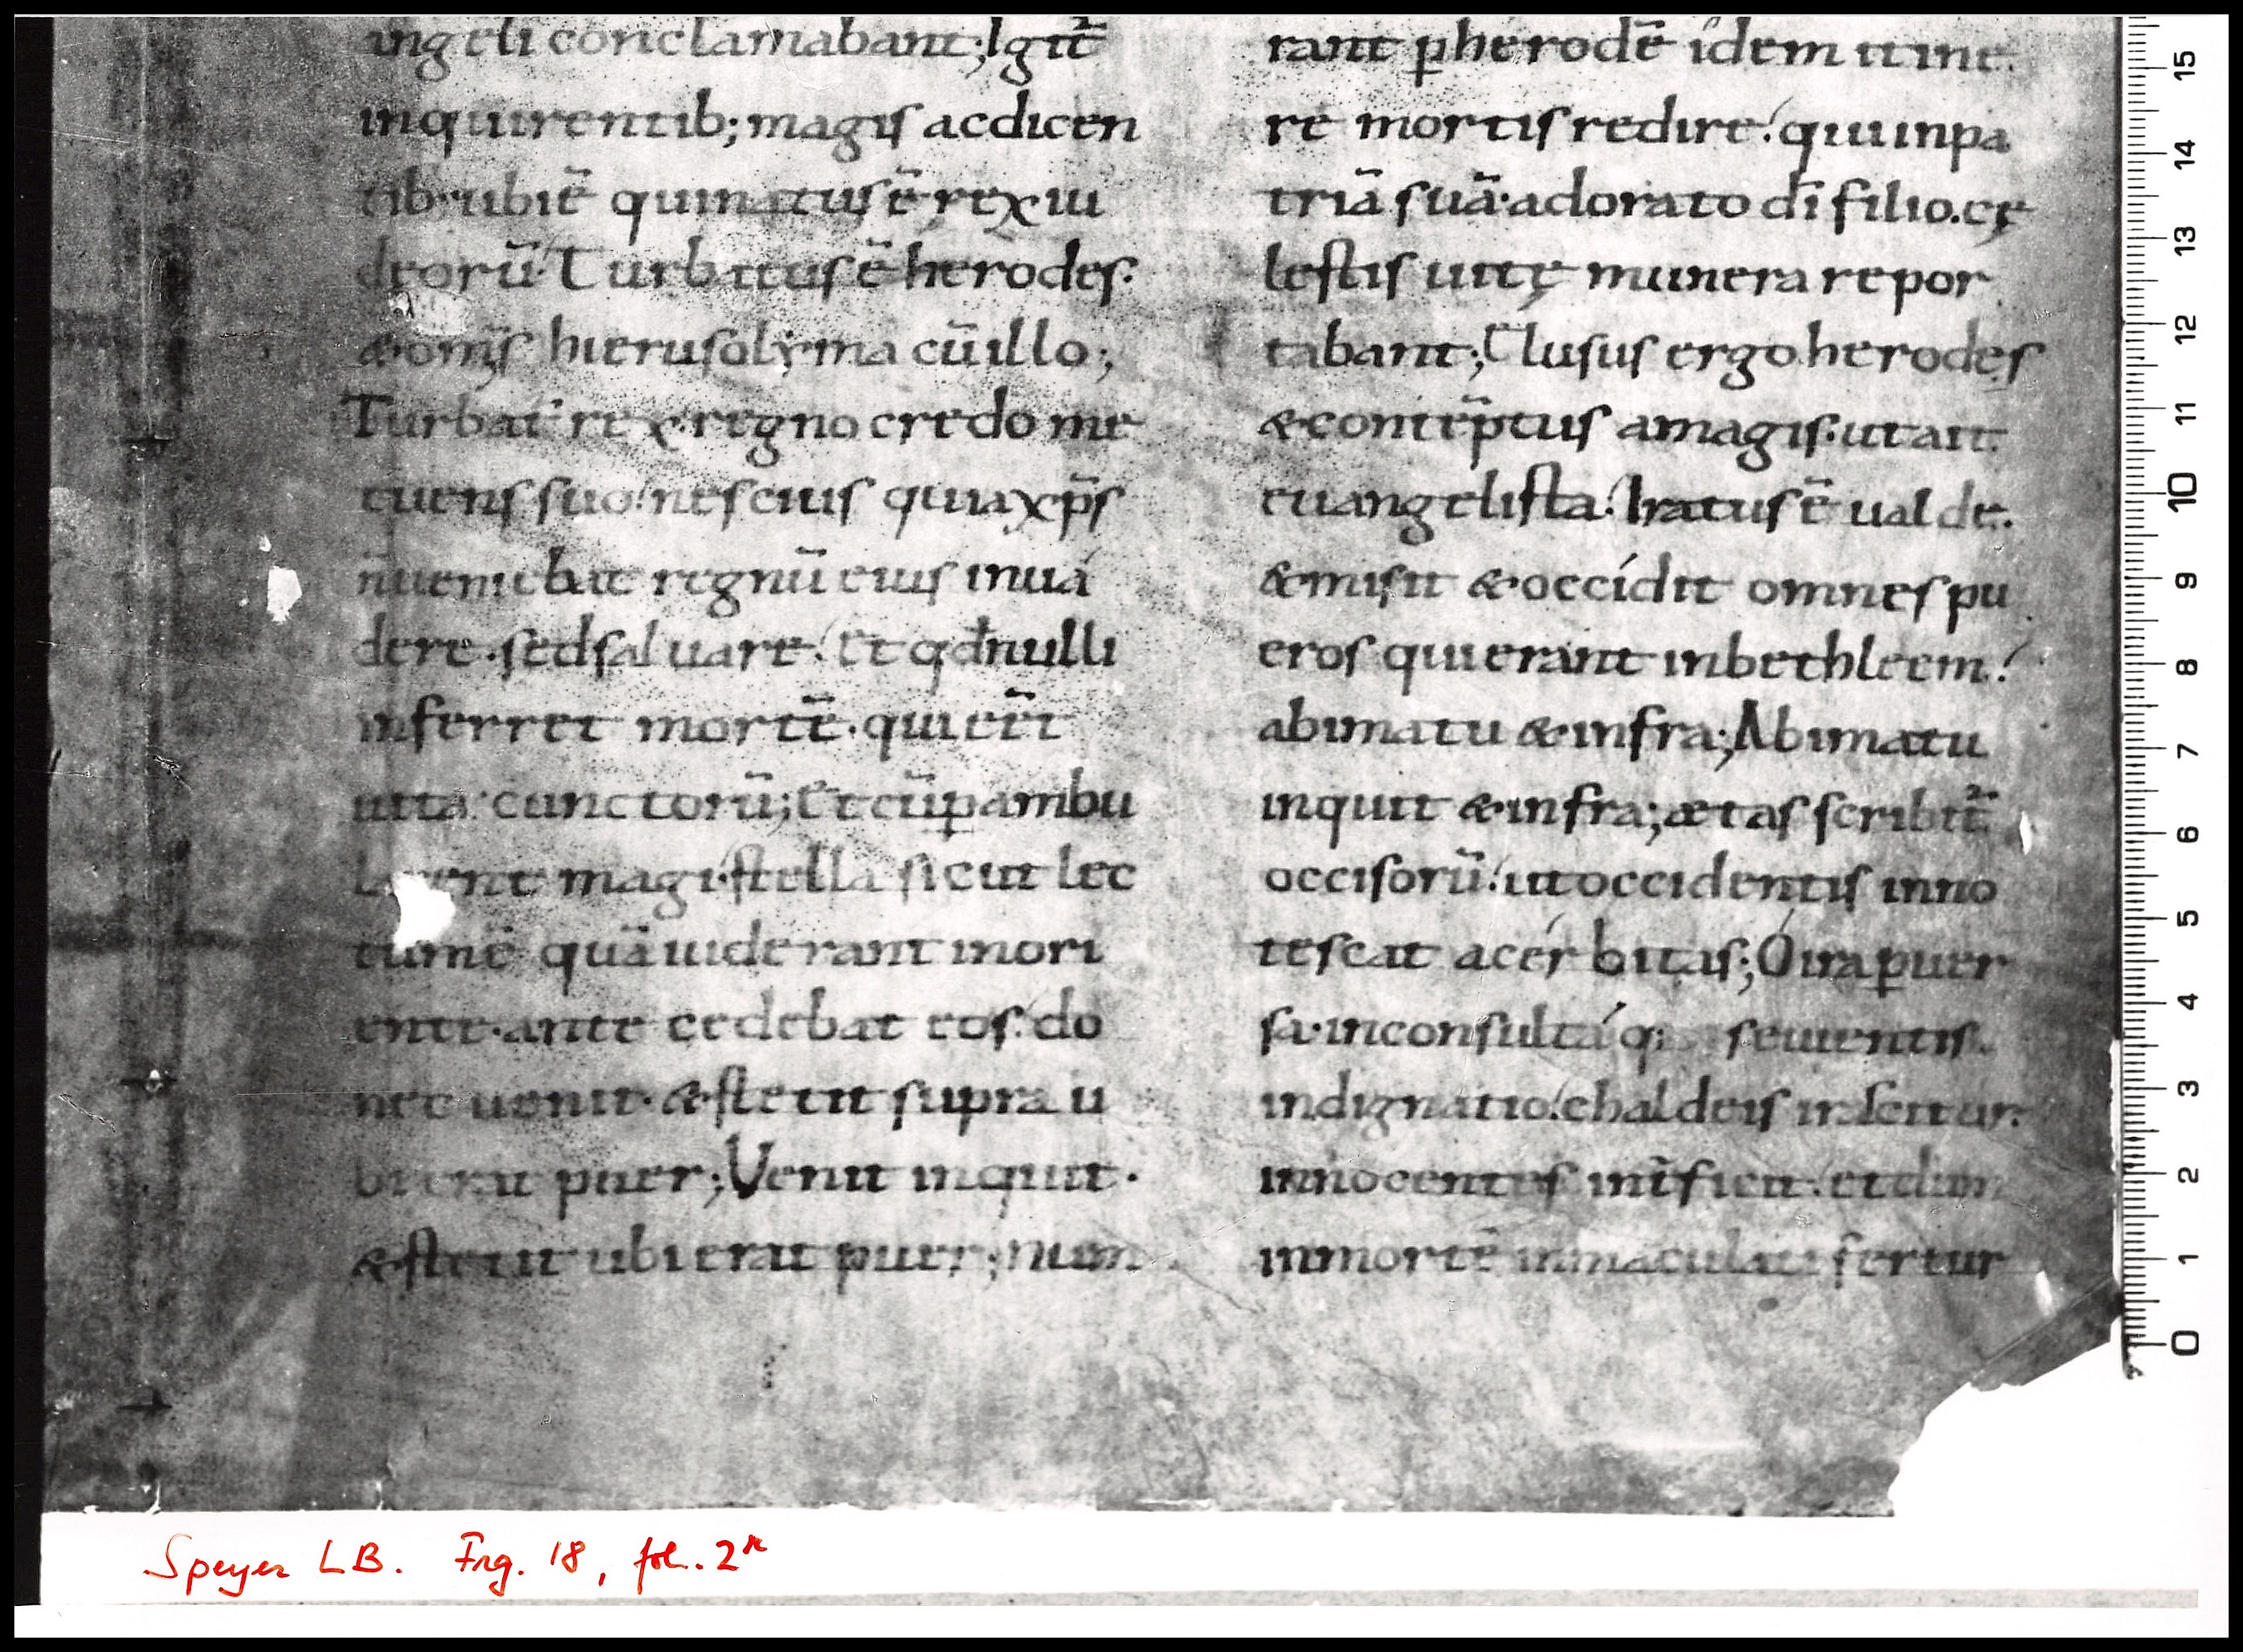 angeli conclamabant; Igit̄
inquirentib; magis ac dicen
tib· ubi ē qui natus ē rex iu
deorū· Turbatus ē herodes·
& om̄s hierusolyma cū illo;
Turbat᷑ rex regno credo me
tuens suo nescius quia xp̄s
n̄ ueniebat regnū eius inuá
dere· sed saluare· Et qđ nulli
inferret mortē· qui er̄t
uita cunctorū; Et cū ꝑambu
magi stella sicut lec
tum ē quā uiderant in ori
ente· ante cedebat eos· do
nec uenit· & stetit supra u
bi erat puer; Venit inquit·
& stetit ubi erat puer; num
rant ꝑ herodē idem itine
re mortis redire qui in pa
triā suā· adorato dī filio. cę
lestis uitę munera repor
tabant; Elusus ergo herodes
& contēptus a magis· ut ait
euangelista Iratus ē ualde·
& misit & occídit omnes pu
eros qui erant in bethleem
a bimatu & infra; A bimatu
inquit & infra; ætas scribit᷑
occisorū ut occidentis inno
tescat acérbitas; Ó ira ꝑuer
sa· inconsultáq; seuientis·
indignatio chaldeis irascitur
innocentes int̄ficit et dum
in mortē inmaculati fertur
15
14
13
12
11
10
9
8
7
6
5
4
3
2
1
0
Speyer LB. Frg. 18, fol. 2r